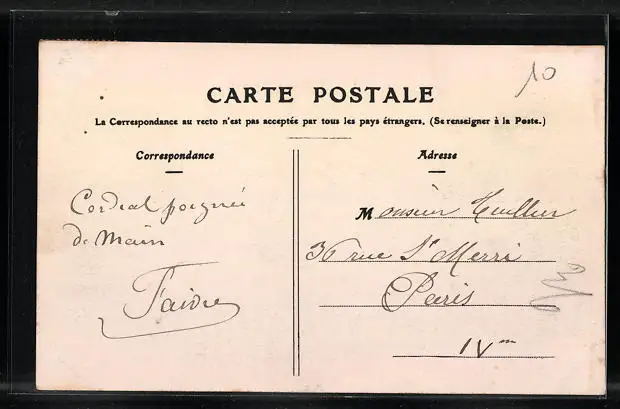 10
CARTE POSTALE
La Correspondance au recto n'est pas acceptée par tous les pays étrangers. (Se renseigner à la Poste.)
Correspondance
Cordial poignée
de main
Faivre
Adresse
Monsieur
36 rue St Merri
Paris
IVm